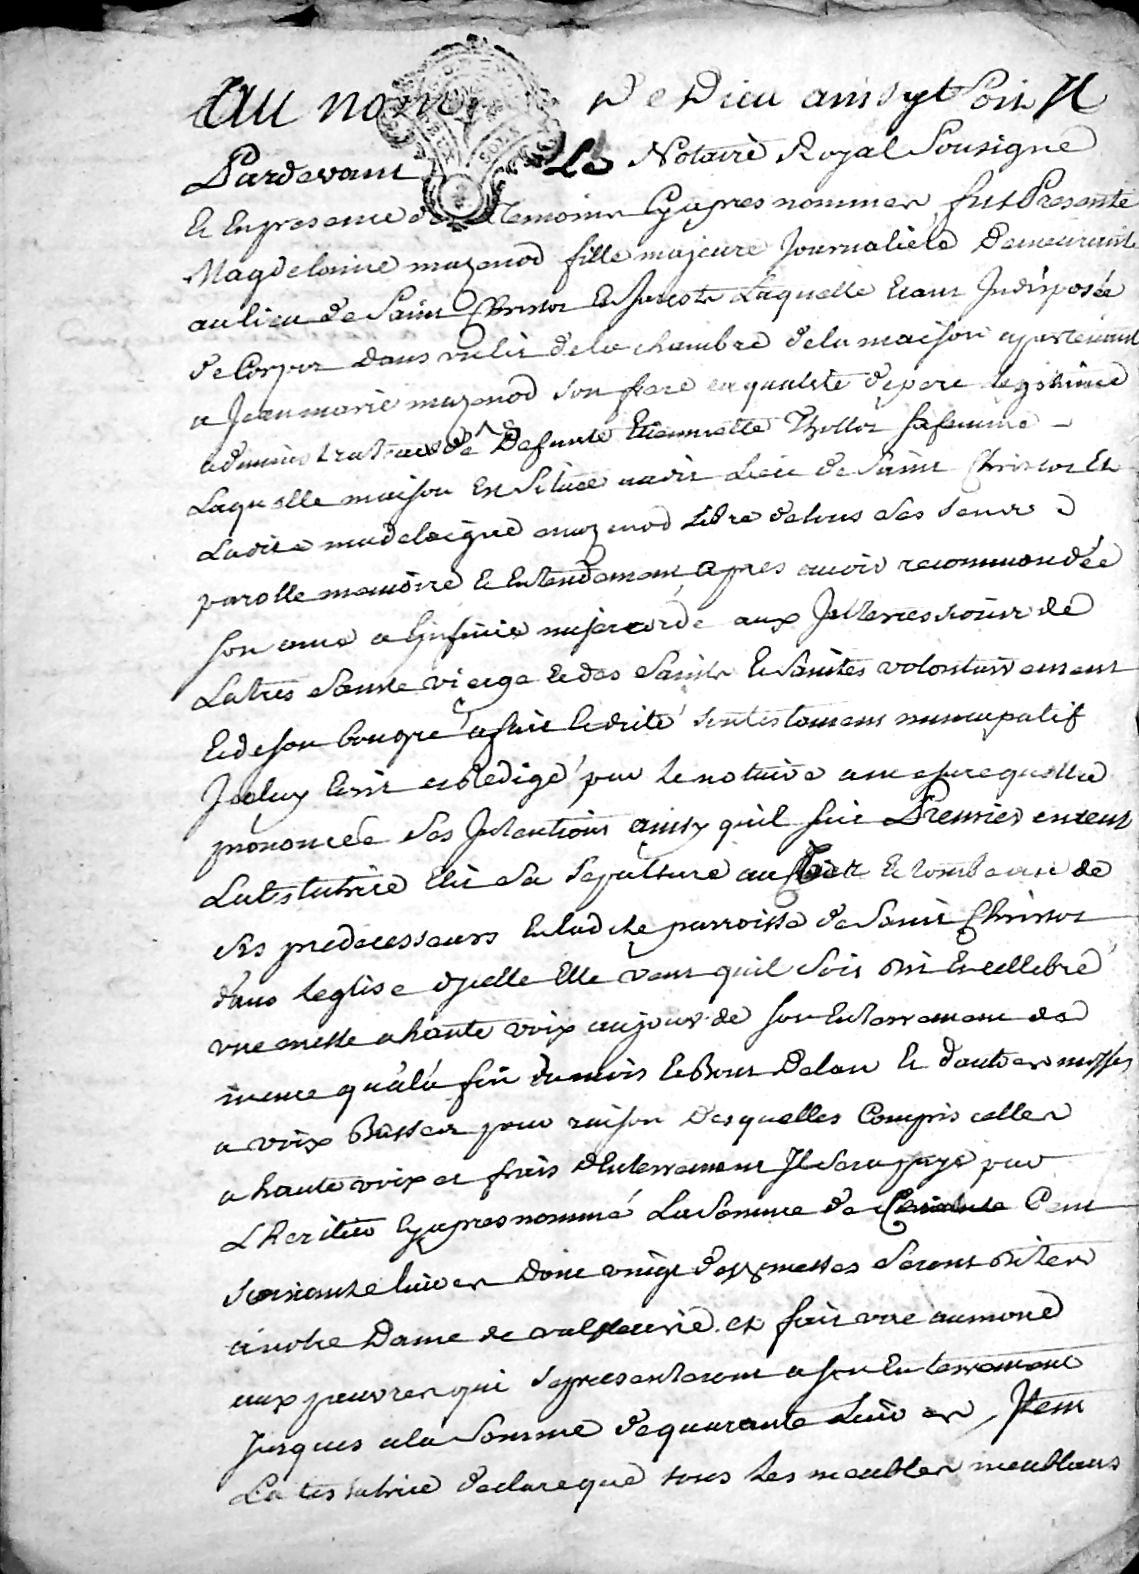 Au nom De Dieu ainsy Soit Il
Pardevant Le Notaire Royal Sousigné
Et En presence de Temoins Cy apres nommes, fut Presente
Magdelainne mazenod fille majeure Journaliele Demeurant
au lieu de Saint Christot En Laquelle Etant Indisposée
de Corps dans un lit de la chambre de la maison apartenant
a Jean marie mazenod son frere en qualité de pere legitime
administrateur de Defunte Etiennette Thollot sa femme -
Laquelle maison Est Situee audit Lieu de Saint Christot Et
Ladite madeleigne mazenod Libre de tous Ses Sens
parolle memoire Et Entendement apres avoir recommandée
son ame a Linfinie misericorde aux Intercessions de
La tres Sainte vierge Et des Saints Et Saintes volontairement
Et de son bongré a fait Et dicté son testament nuncupatif
Iceluy Ecrit et Redigé par le notaire a mesure quelle a
prononcée Ses Intentions ainsy quil suit Premierement
La testatrice Elit Sa Sepulture au Et tombeau de
Ses predecesseurs En ladite parroisse de Saint Christot
dans leglise dicelle Elle veut quil Soit dit Et cellebré
une messe a haute voix au jour de son Enterrement de
meme qu'a la fin du mois Et Bout De lan Et dautres messes
a voix Basse pour raison Desquelles Compris celles
a haute voix et frais dEnterrement Il Sera payé par
L heritier Cy apres nommé La Somme de Cent
Soixante livres Dont vingt desd messes Seront dites
a notre Dame de valfleurie et fait une aumone
aux pauvres qui Se presenteront a son Enterrement
Jusques a la Somme de quarante Livres, Item
La testatrice declare que tous Les meubles meublans